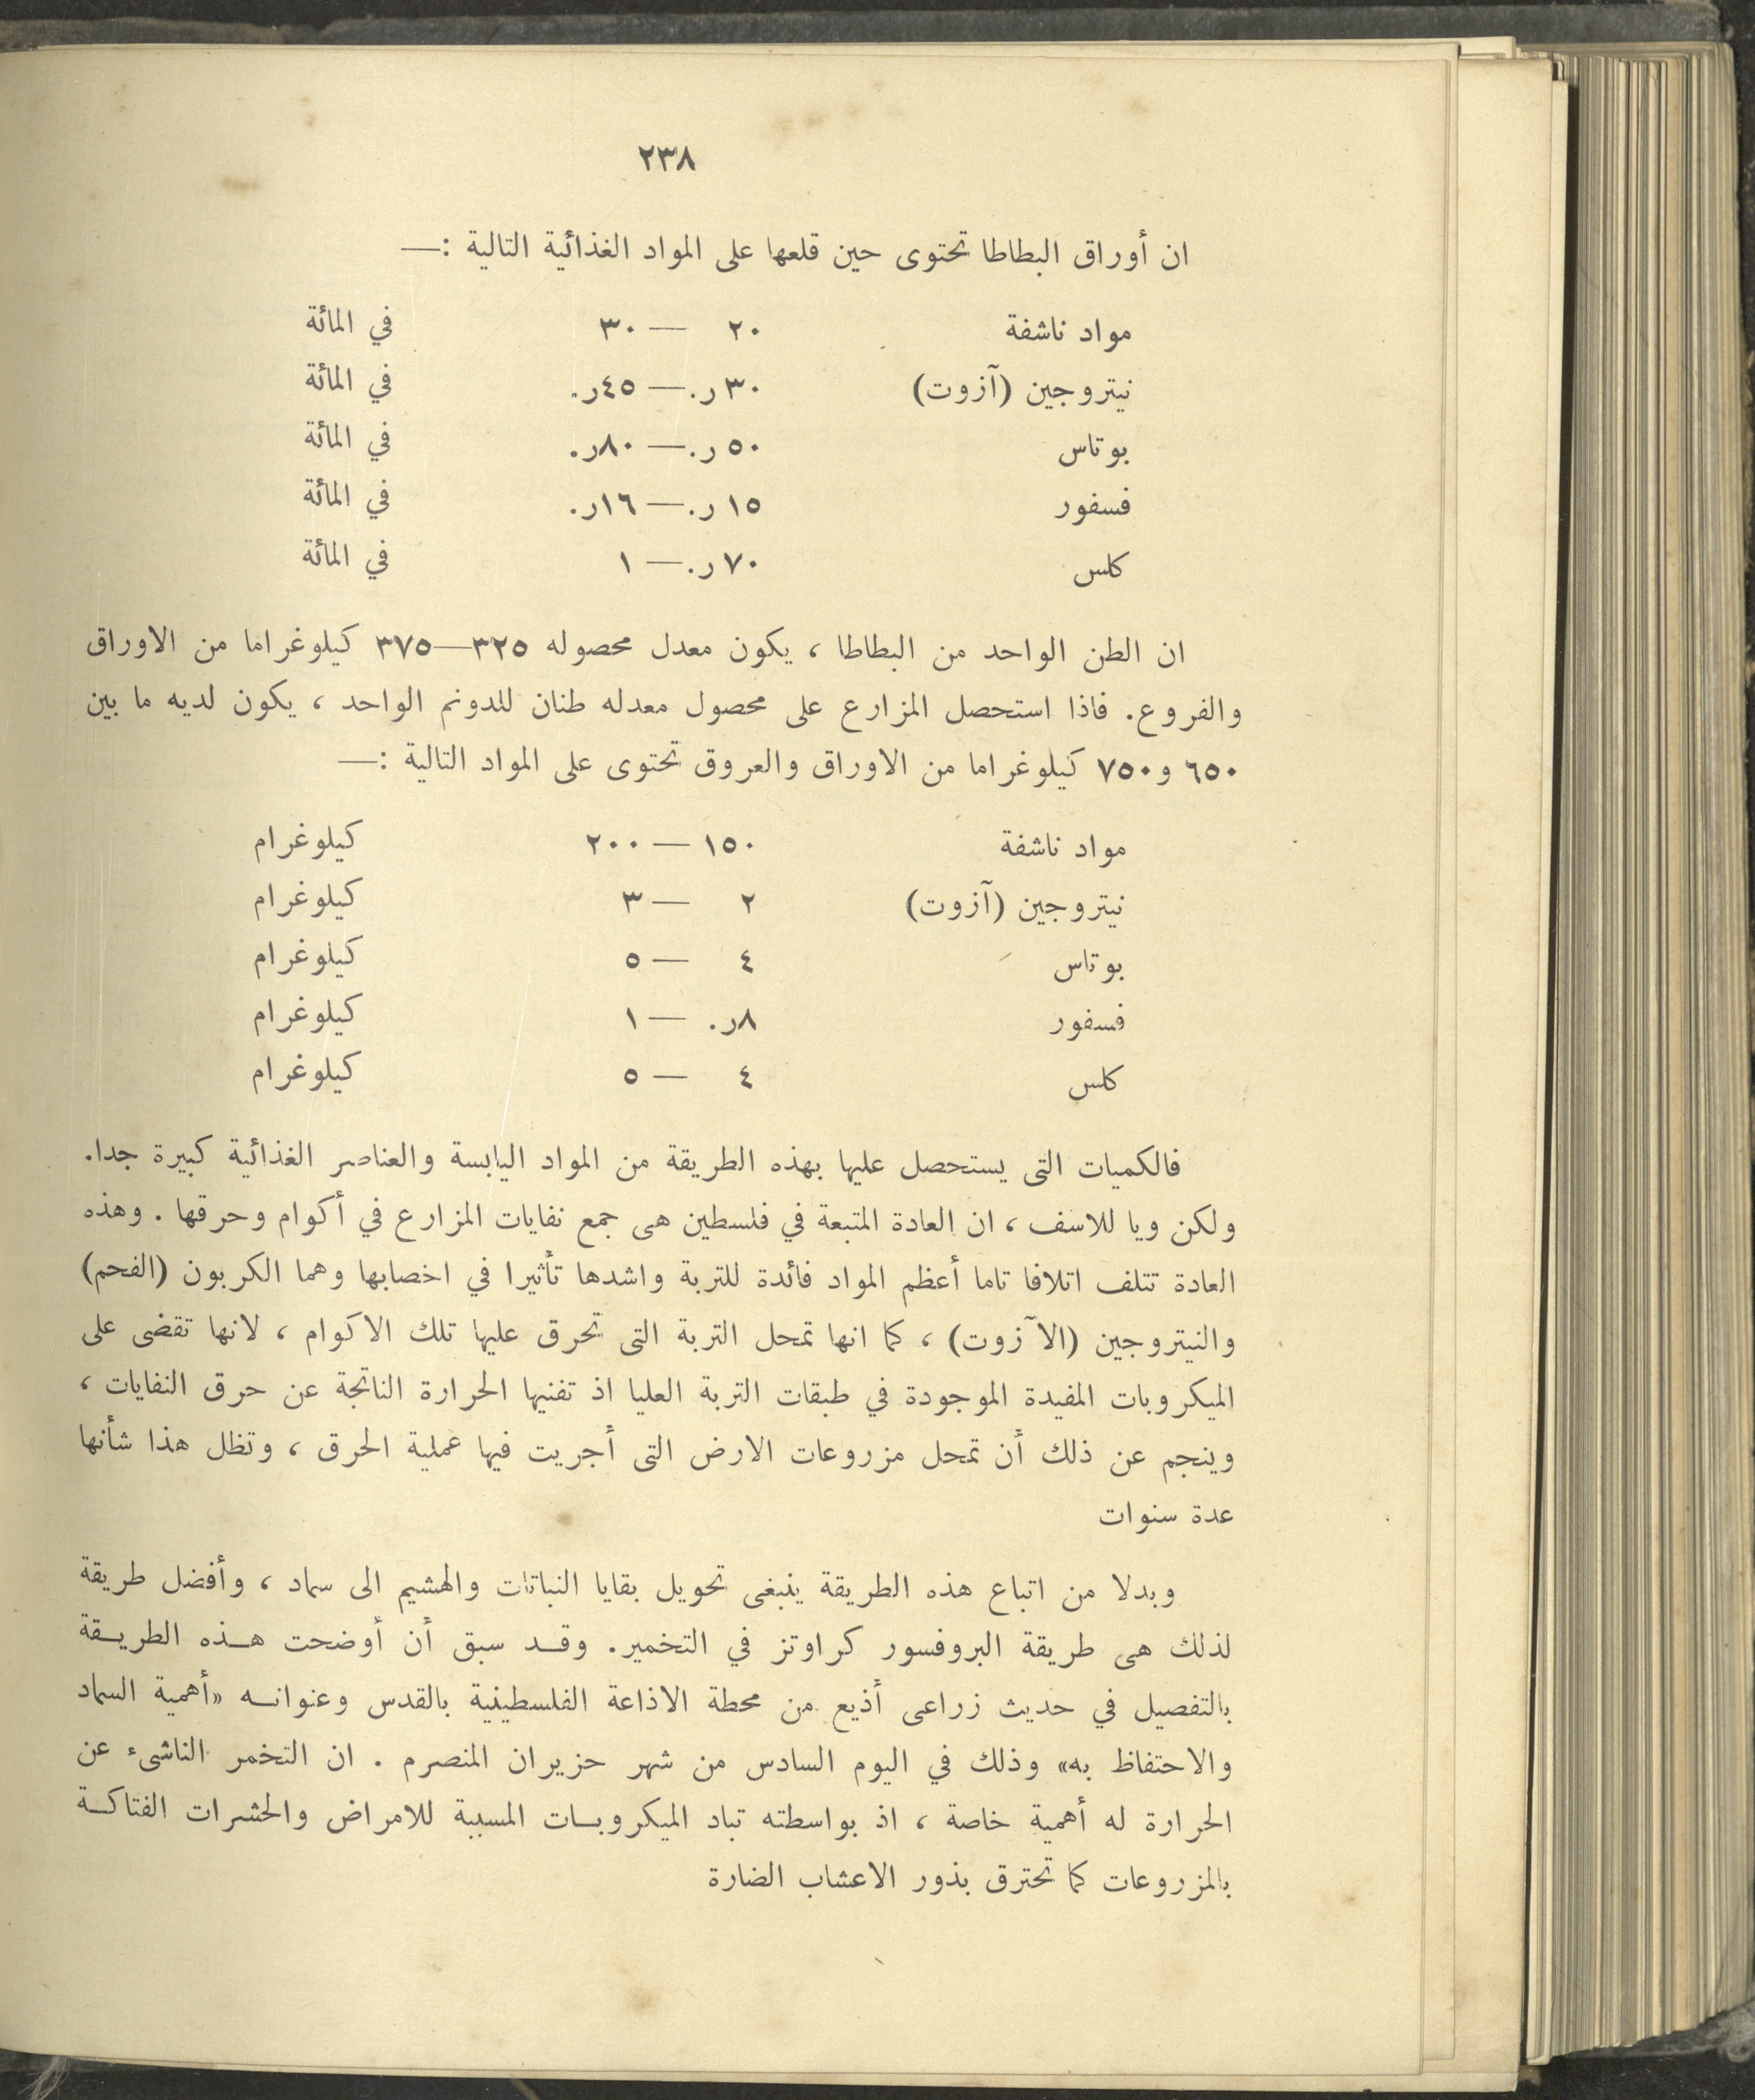 ٢٣٨
ان أوراق البطاطا تحتوى حين قلعها على المواد الغذائية التالية :—
مواد ناشفة ٢٠ — ٣٠ في المائة
نيتروجين (آزوت) ٣٠ر.— ٤٥ر. في المائة
بوتاس ٥٠ر.— ٨٠ر. في المائة
فسفور ١٥ر.— ١٦ر. في المائة
كلس ٧٠ر.— ١ في المائة
ان الطن الواحد من البطاطا ، يكون معدل محصوله ٣٢٥—٣٧٥ كيلوغراما من الاوراق
والفروع. فاذا استحصل المزارع على محصول معدله طنان للدونم الواحد ، يكون لديه ما بين
٦٥٠ و٧٥٠ كيلوغراما من الاوراق والعروق تحتوى على المواد التالية :—
مواد ناشفة ١٥٠ — ٢٠٠ كيلوغرام
نيتروجين (آزوت) ٢ — ٣ كيلوغرام
بوتاس ٤ — ٥ كيلوغرام
فسفور ٨ر. — ١ كيلوغرام
كلس ٤ — ٥ كيلوغرام
فالكميات التى يستحصل عليها بهذه الطريقة من المواد اليابسة والعناصر الغذائية كبيرة جدا.
ولكن ويا للاسف ، ان العادة المتبعة في فلسطين هى جمع نفايات المزارع في أكوام وحرقها . وهذه
العادة تتلف اتلافا تاما أعظم المواد فائدة للتربة واشدها تأثيرا في اخصابها وهما الكربون (الفحم)
والنيتروجين (الآزوت) ، كما انها تمحل التربة التى تحرق عليها تلك الاكوام ، لانها تقضى على
الميكروبات المفيدة الموجودة في طبقات التربة العليا اذ تفنيها الحرارة الناتجة عن حرق النفايات ،
وينجم عن ذلك أن تمحل مزروعات الارض التى أجريت فيها عملية الحرق ، وتظل هذا شأنها
عدة سنوات
وبدلا من اتباع هذه الطريقة ينبغى تحويل بقايا النباتات والهشيم الى سماد ، وأفضل طريقة
لذلك هى طريقة البروفسور كراوتز في التخمير. وقد سبق أن أوضحت هذه الطريقة
بالتفصيل في حديث زراعى أذيع من محطة الاذاعة الفلسطينية بالقدس وعنوانه «أهمية السماد
والاحتفاظ به» وذلك في اليوم السادس من شهر حزيران المنصرم . ان التخمر الناشىء عن
الحرارة له أهمية خاصة ، اذ بواسطته تباد الميكروبات المسببة للامراض والحشرات الفتاكة
بالمزروعات كما تحترق بذور الاعشاب الضارة